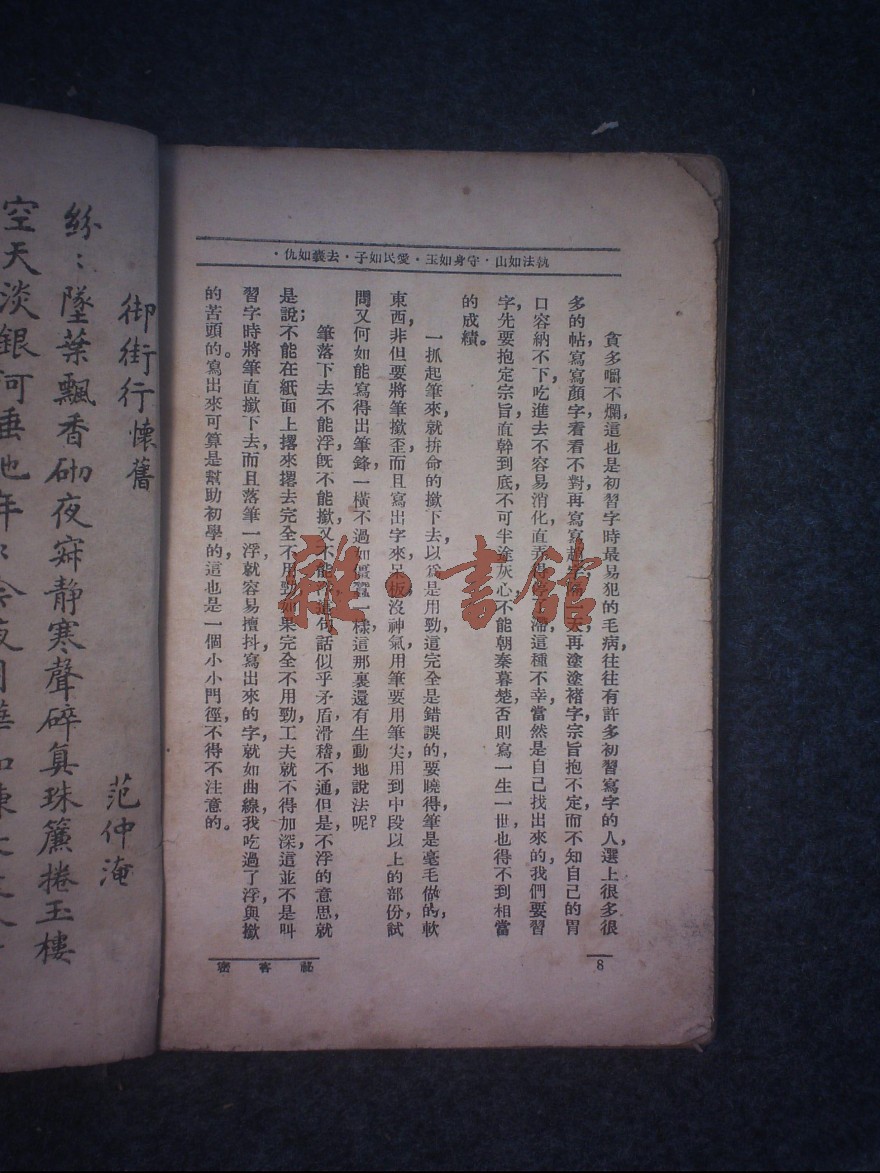 執法如山·守身如玉·愛民如子·去蠹如仇·
貪多嚼不爛,這也是初習字時最易犯的毛病,往往有許多初習寫字的人,選上很多很
多的帖,寫寫顏字,看看不對,再寫寫趙字,隔一天再塗塗褚字,宗旨抱不定,而不知自己的胃
口容納不下,吃進去不容易消化,直弄得停滯,這種不幸,當然是自己找出來的,我們要習
字,先要抱定宗旨,直幹到底,不可半途灰心,不能朝秦暮楚,否則寫一生一世,也得不到相當
的成績。
一抓起筆來,就拚命的撳下去,以爲是用勁,這完全是錯誤的,要曉得筆是毫毛做的,軟
東西,非但要將筆撳歪,而且寫出字來,呆板沒神氣,用筆要用筆尖,用到中段以上的部份,試
問又何如能寫得出筆鋒,一橫不過如殭蠶一樣,這那裏還有生動地說法呢?
筆落下去不能浮,旣不能撳,又不能浮,這句話似乎矛盾滑稽不通,但是,不浮的意思,就
是說;不能在紙面上撂來撂去,完全不用勁,如果完全不用勁,工夫就不得加深,這並不是叫
習字時將筆直撳下去,而且落筆一浮,就容易擅抖,寫出來的字,就如曲線,我吃過了浮與撳
的苦頭的。寫出來可算是幫助初學的,這也是一個小小門徑,不得不注意的。
8
祕客密
御街行 懷舊
范仲淹
紛〻墜葉飄香砌夜寂静寒聲碎真珠簾捲玉樓
空天淡銀河垂地年年今夜月華如練
雜·書館